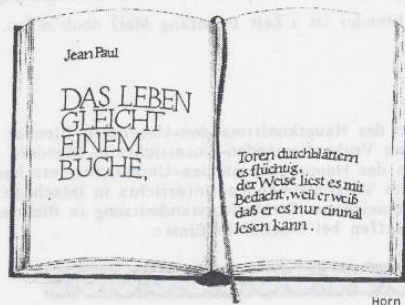 Jean Paul
DAS LEBEN
GLEICHT
EINEM
BUCHE.
Toren durchblättern
es flüchtig,
der Weise liest es mit
Bedacht, weil er weiß
daß er es nur einmal
lesen kann.
Horn